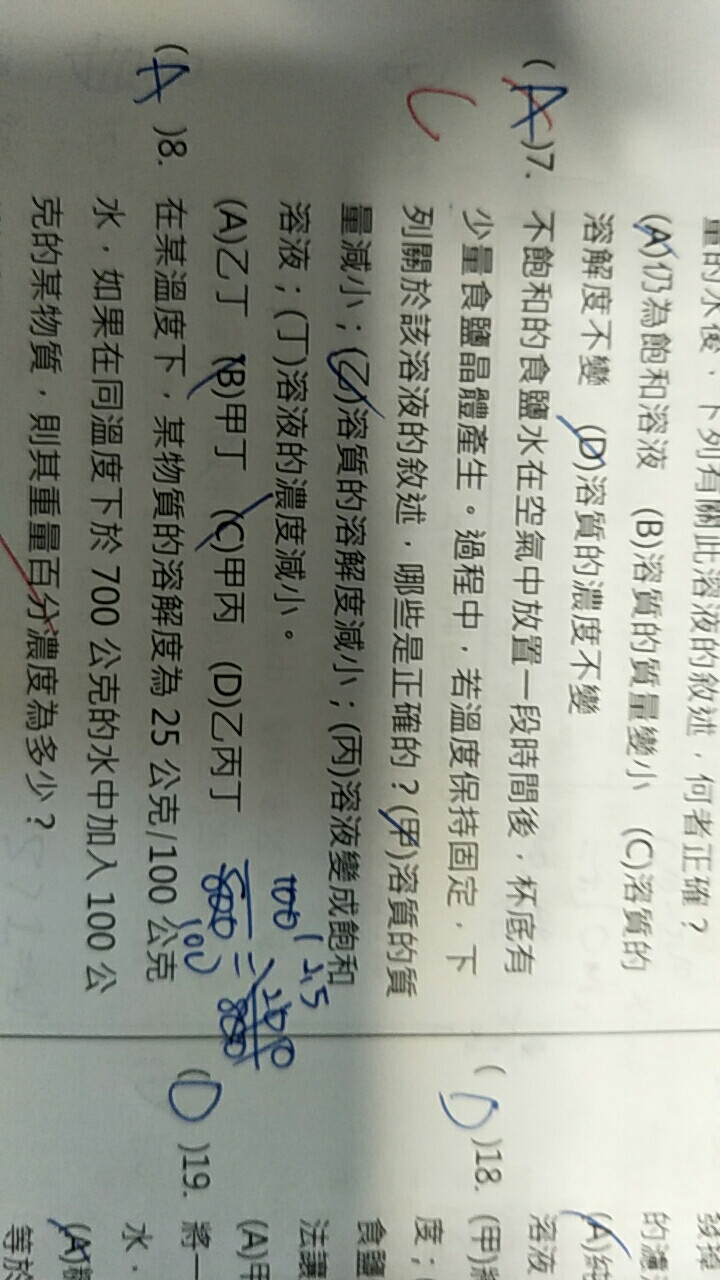 量的水後，下列有關此溶液的敘述，何者正確？
(A)仍為飽和溶液 (B)溶質的質量變小 (C)溶質的
溶解度不變 (D)溶質的濃度不變
(A)7. 不飽和的食鹽水在空氣中放置一段時間後，杯底有
少量食鹽晶體產生。過程中，若溫度保持固定，下
C
列關於該溶液的敘述，哪些是正確的？(甲)溶質的質
量減小；(乙)溶質的溶解度減小；(丙)溶液變成飽和
溶液；(丁)溶液的濃度減小。
(A)乙丁 (B)甲丁 (C)甲丙 (D)乙丙丁
(A)8. 在某溫度下，某物質的溶解度為 25 公克/100 公克
水，如果在同溫度下於 700 公克的水中加入 100 公
克的某物質，則其重量百分濃度為多少？
100
800
=
(D)18. (甲)
度；
食鹽
法讓
(A)甲
(D)19. 將一
水，
(A)
等於
的濃
(A)
溶液